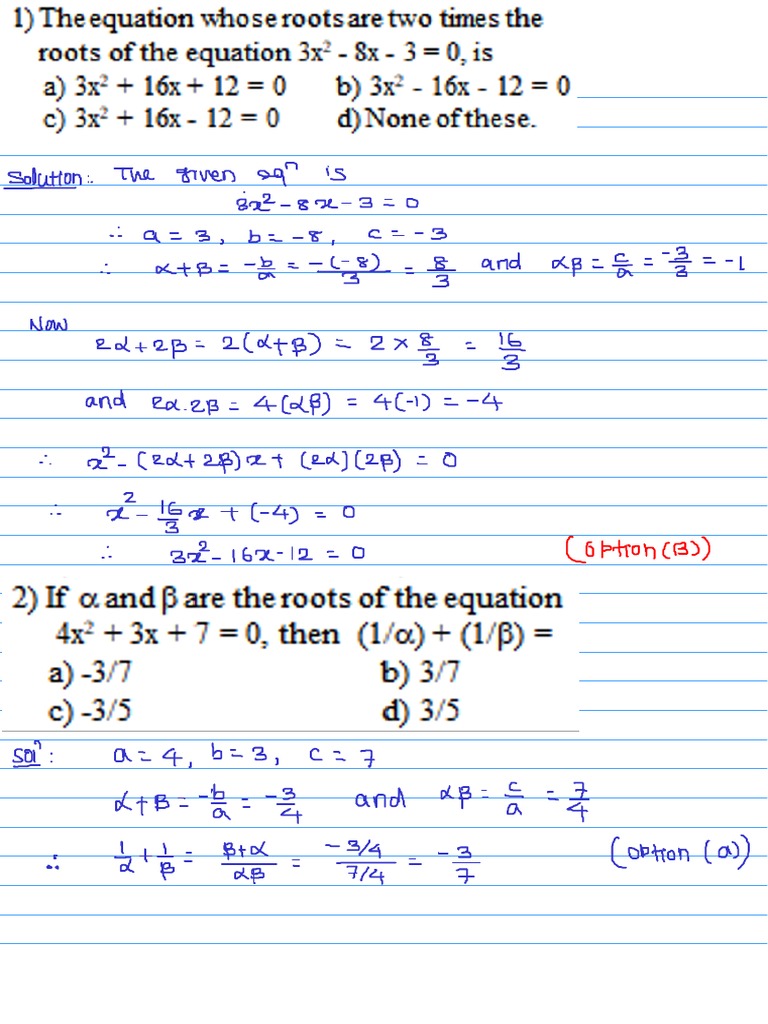 1) The equation whose roots are two times the
roots of the equation 3x² - 8x - 3 = 0, is
a) 3x² + 16x + 12 = 0 b) 3x² - 16x - 12 = 0
c) 3x² + 16x - 12 = 0 d) None of these.
Solution:. The given eqⁿ is
3x² - 8x - 3 = 0
∴ a = 3, b = -8, c = -3
∴ α+β = -b/a = -(-8)/3 = 8/3 and αβ = c/a = -3/3 = -1
Now
2α + 2β = 2(α+β) = 2 × 8/3 = 16/3
and 2α.2β = 4(αβ) = 4(-1) = -4
∴ x² - (2α + 2β)x + (2α)(2β) = 0
∴ x² - 16/3 x + (-4) = 0
∴ 3x² - 16x - 12 = 0 (option (B))
2) If α and β are the roots of the equation
4x² + 3x + 7 = 0, then (1/α) + (1/β) =
a) -3/7 b) 3/7
c) -3/5 d) 3/5
Solⁿ: a = 4, b = 3, c = 7
α+β = -b/a = -3/4 and αβ = c/a = 7/4
∴ 1/α + 1/β = β+α/αβ = -3/4/7/4 = -3/7 (option (a))